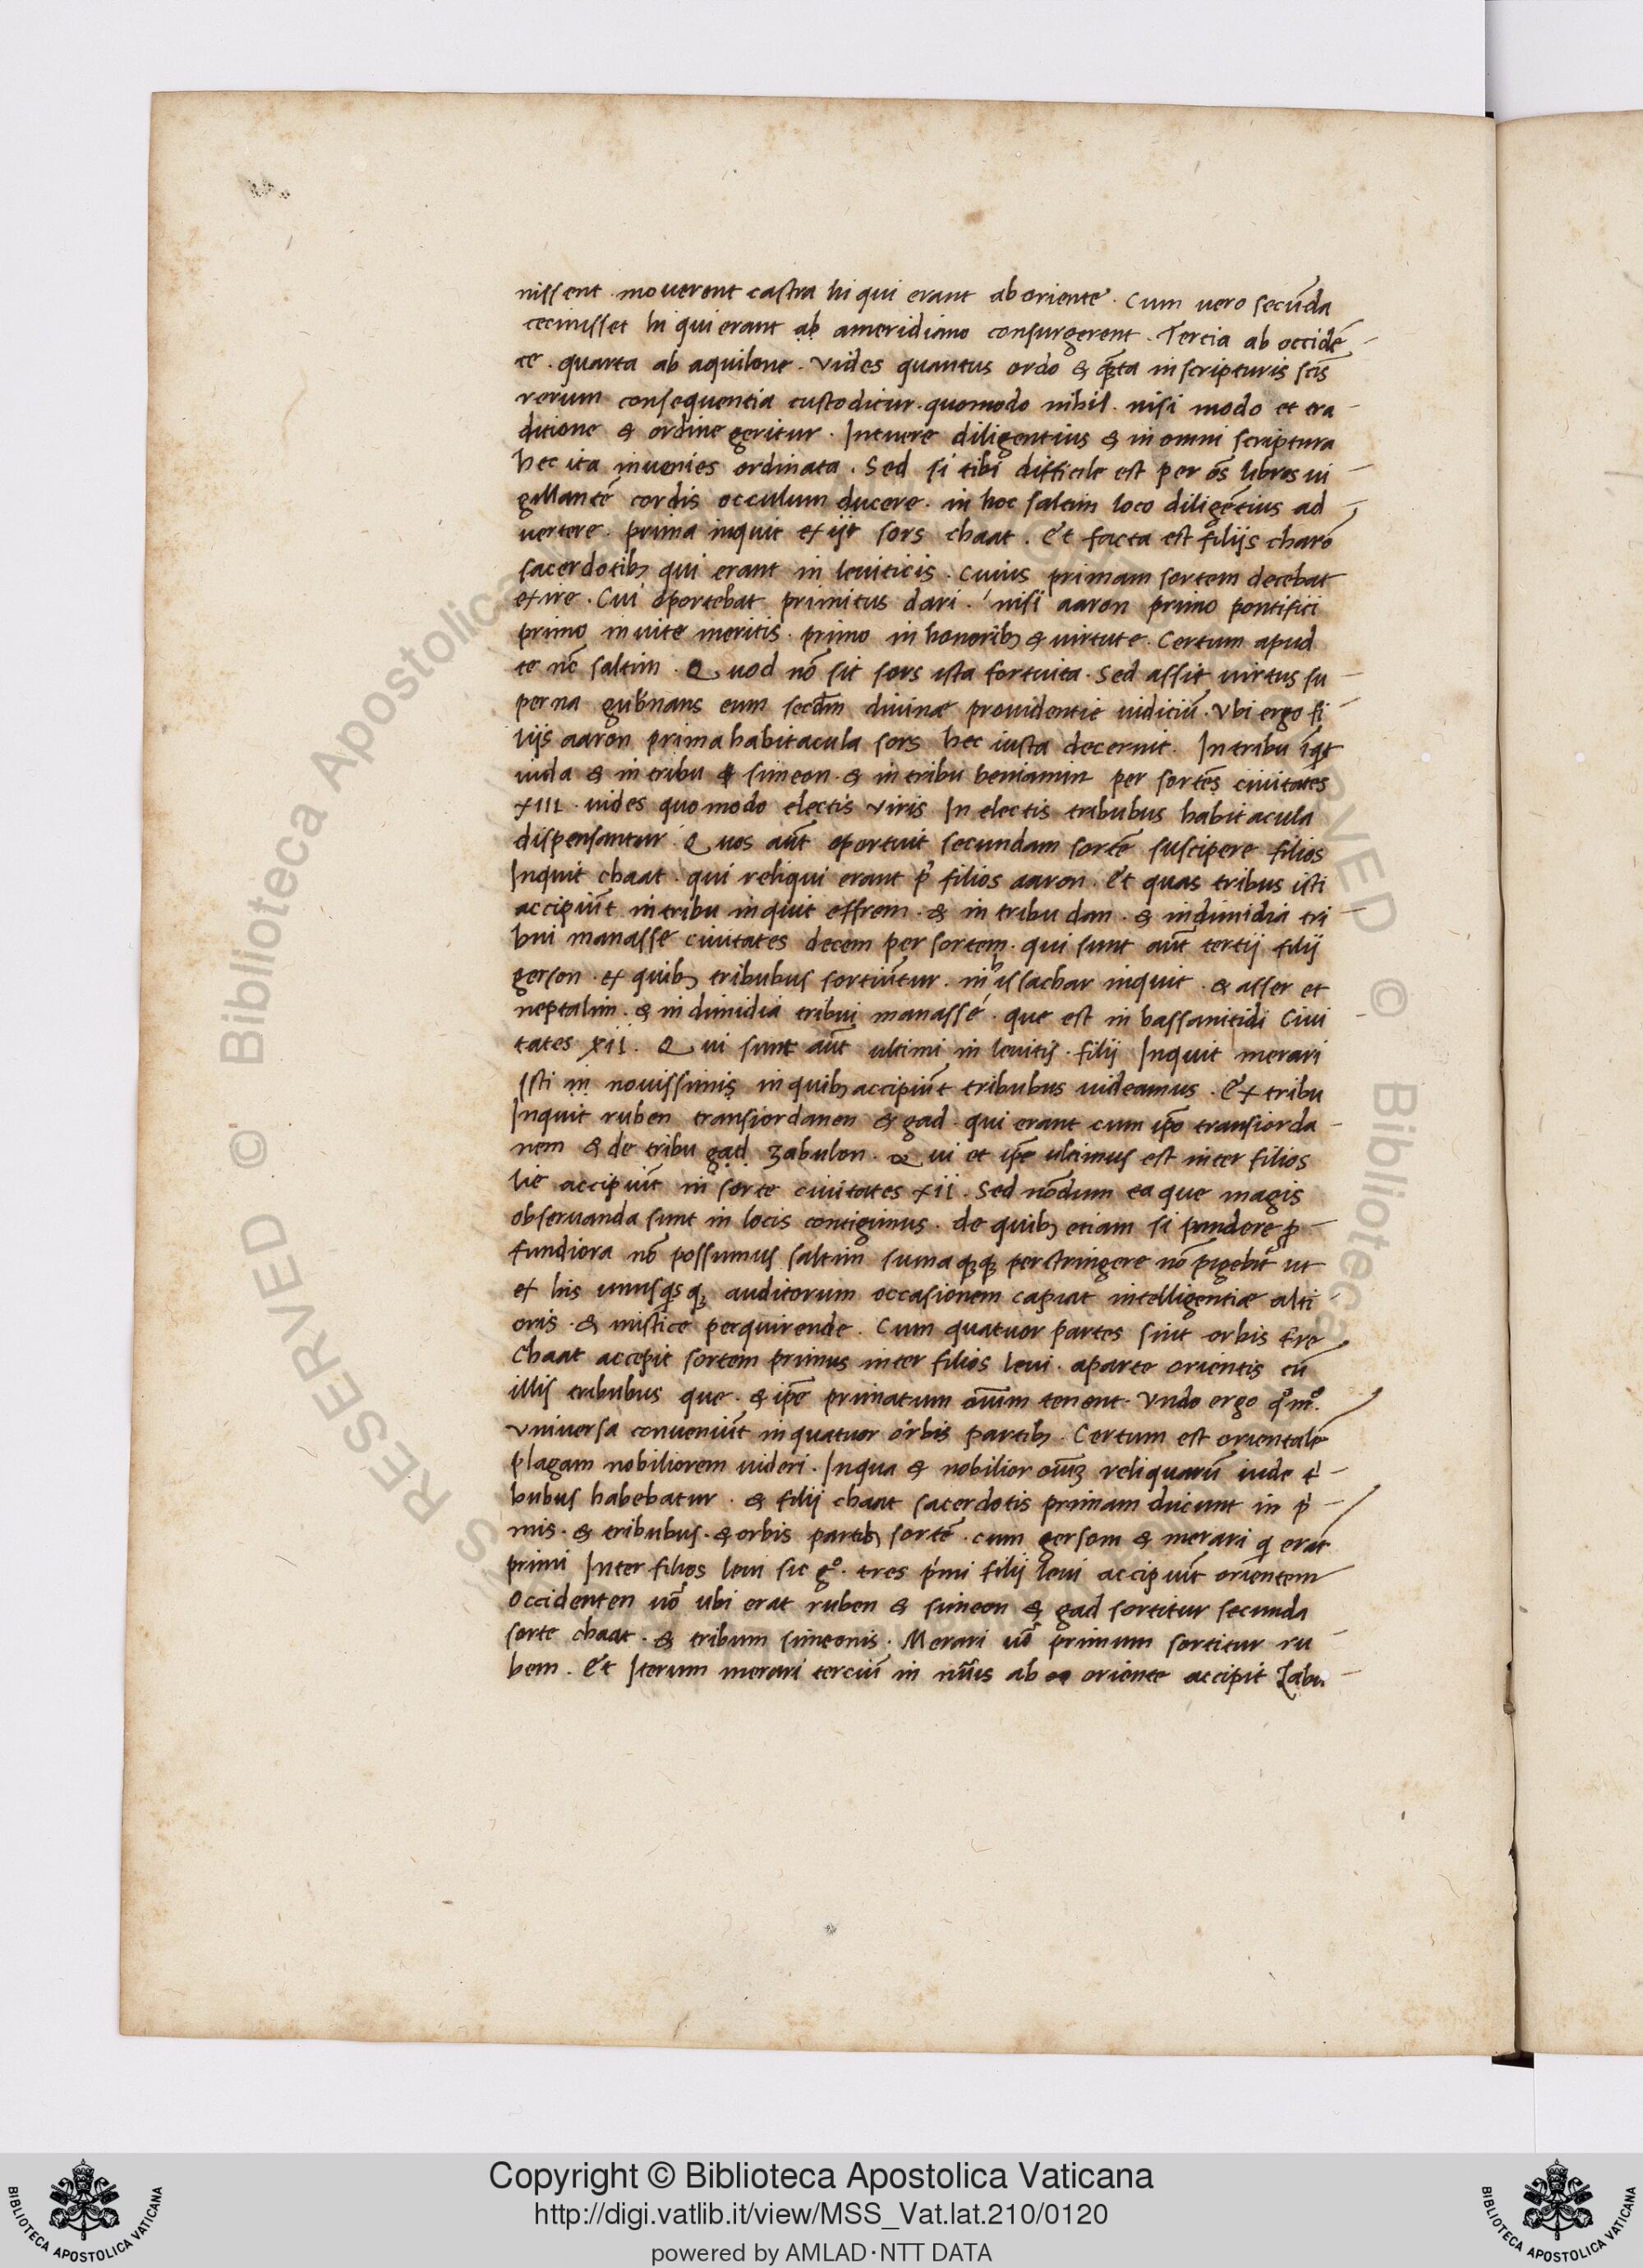 nissent moverent castra hi qui erant ab oriente. Cum vero secūda
cecinisset hi qui erant ab ameridiano consurgerent. Tercia ab occidē
te. quarta ab aquilone. Vides quantus ordo & quāta in scripturis scīs
rerum consequentia custoditur. quomodo nihil. nisi modo et tra
ditione & ordine geritur. Intuere diligentius & in omni scriptura
hec ita invenies ordinata. Sed si tibi difficile est per ōs libros ui
gillantē cordis occulum ducere. in hoc saltim loco diligētius ad
uertere. prima inquit exijt sors chaat. Et facta est filijs charō
sacerdotibꝫ qui erant in leviticis. Cuius primam sortem decebat
exire. Cui oportebat primitus dari. nisi aaron primo pontifici
primo in uite meritis. primo in honoribꝫ & uirtute. Certum apud
te nō saltim. Quod nō sit sors ista fortuita. Sed assit uirtus su
perna gub̄nans eum secdm̄ divinæ prouidentie iudiciū. Vbi ergo fi
lijs aaron prima habitacula sors hec iusta decernit. In tribu īqt
iuda & in tribu simeon. & in tribu beniamin per sortes civitates
XIII. uides quomodo electis viris In electis tribubus habitacula
dispensantur Quos aūt oportuit secundam sortē suscipere filios
Inquit chaat. qui reliqui erant p' filios aaron. Et quas tribus isti
accipiūt in tribu inquit effrem. & in tribu dan. & in dimidia tri
bui manasse civitates decem per sortem. qui sunt aūt tertij filij
gerson. ex quibꝫ tribubus sortiūtur. issachar inquit. & asser et
neptalim. & in dimidia tribui manassé. que est in bassanitidi Civi
tates XII. Qui sunt aūt ultimi in levitis. filij Inquit merari
Isti in novissimis in quibꝫ accipiūt tribubus uideamus. Ex tribu
Inquit ruben transiordanen & gad. qui erant cum ipō transiorda
nem & de tribu gad zabulon. Qui et ipē ultimus est inter filios
lie accipiūt in sorte civitates XII. Sed nōdum ea que magis
observanda sunt in locis contigimus. de quibꝫ etiam si pandere ꝓ
fundiora nō possumus saltim suma quęque perstringere nō pigebit ut
ex his unusqsqꝫ auditorum occasionem capiat intelligentiæ alti
oris. & mistice perquirende. Cum quatuor partes sint orbis t̄re
Chaat accepit sortem primus inter filios levi. aparte orientis cū
illis tribubus que. & ipē primatum oīum tenent. Vnde ergo qºmº.
Vniversa conveniūt in quatuor orbis partibꝫ. Certum est orientalē
plagam nobiliorem uideri. In qua & nobilior oīuꝫ reliquarū iude t'
bubus habebatur. & filij chaat sacerdotis primam ducunt in p'
mis. & tribubus. & orbis partibꝫ sortē. cum gersom & merari q erāt
primi Inter filios levi sic gº. tres p'mi filij levi accipiūt orientem
Occidenten uō ubi erat ruben & simeon & gad sortitur secunda
sorte chaat. & tribum simeonis. Merari uō primum sortitur ru
bem. Et Iterum merari terciū in nūis ab oriente accipit Zabu
Copyright © Biblioteca Apostolica Vaticana
http://digi.vatlib.it/view/MSS_Vat.lat.210/0120
powered by AMLAD·NTT DATA
BIBLIOTECA APOSTOLICA VATICANA
BIBLIOTECA APOSTOLICA VATICANA